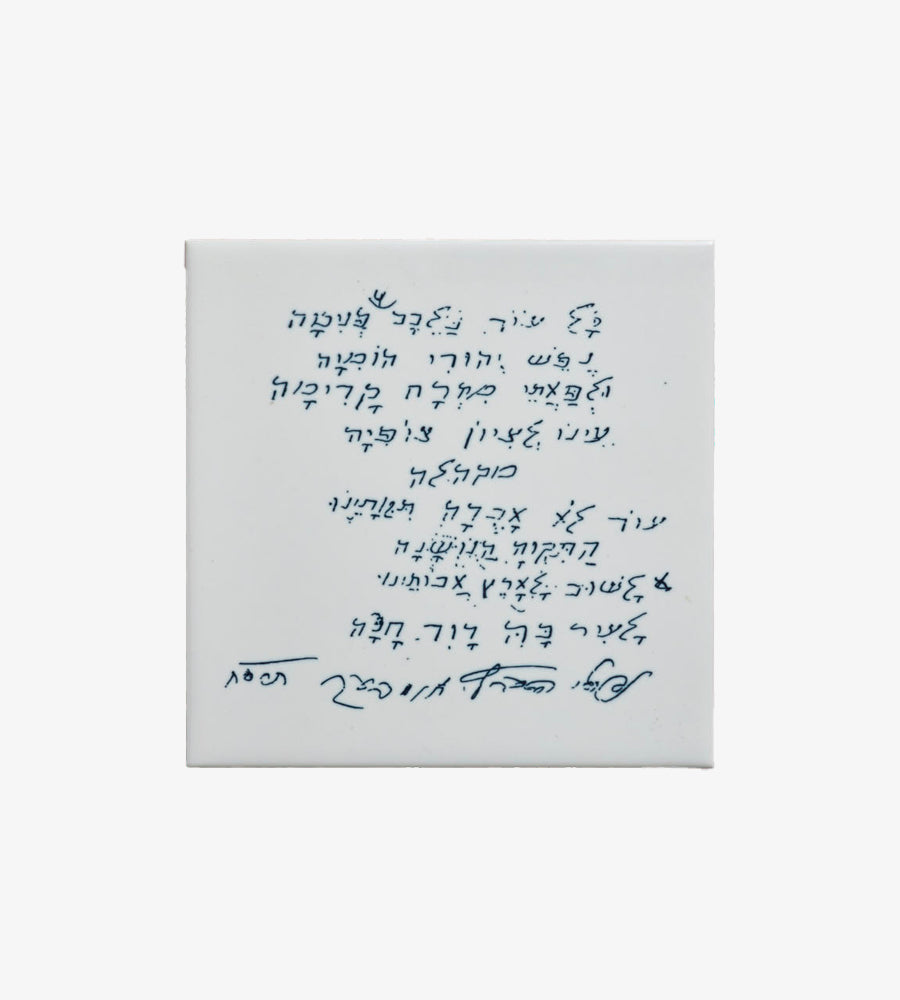 כָּל עוֹד בַּלֵּבָב פְּנִימָה
נֶפֶשׁ יְהוּדִי הוֹמִיָּה
וּלְפַאֲתֵי מִזְרָח קָדִימָה
עֵינוֹ לְצִיּוֹן צוֹפִיָּה
מקהלה
עוֹד לֹא אָבְדָה תִקְוָתֵינוּ
הַתִּקְוָה הַנּוֹשָׁנָה
לָשׁוּב לְאֶרֶץ אֲבוֹתֵינוּ
לָעִיר בָּהּ דָּוִד חָנָה
נפתלי הערץ אימבער